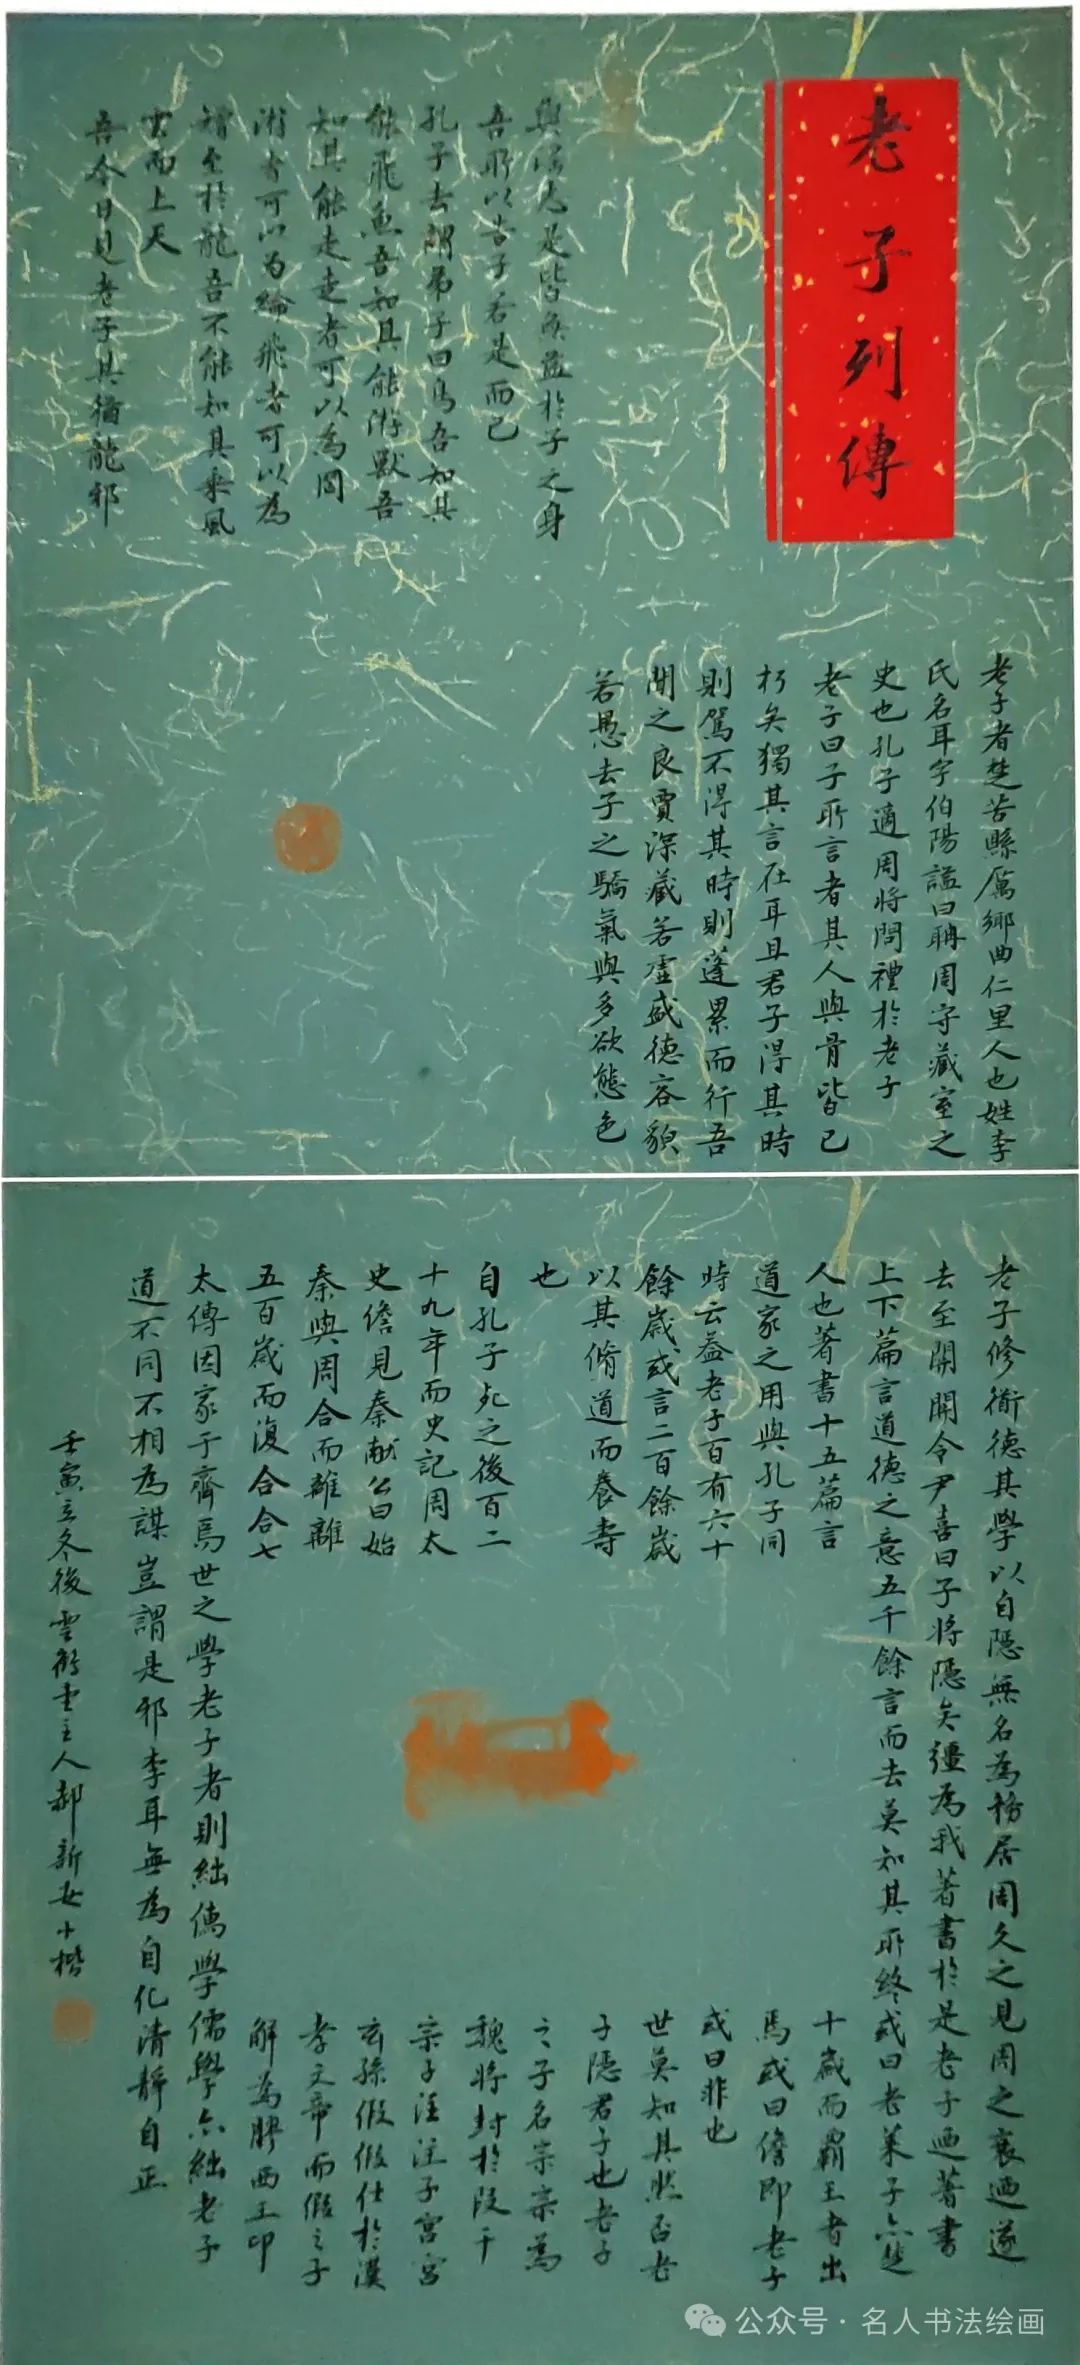 老子列傳
老子者楚苦縣厲鄉曲仁里人也姓李
氏名耳字伯陽謚曰聃周守藏室之
史也孔子適周將問禮於老子
老子曰子所言者其人與骨皆已
朽矣獨其言在耳且君子得其時
則駕不得其時則蓬累而行吾
聞之良賈深藏若虛盛德容貌
若愚去子之驕氣與多欲態色
與淫志是皆無益於子之身
吾所以告子若是而已
孔子去謂弟子曰鳥吾知其
能飛魚吾知其能游獸吾
知其能走走者可以為罔
游者可以為綸飛者可以為
矰至於龍吾不能知其乘風
雲而上天
吾今日見老子其猶龍邪
老子修衟德其學以自隱無名為務居周久之見周之衰迺遂
去至關關令尹喜曰子將隱矣彊為我著書於是老子迺著書
上下篇言道德之意五千餘言而去莫知其所終或曰老萊子亦楚
人也著書十五篇言
道家之用與孔子同
時云蓋老子百有六十
餘歲或言二百餘歲
以其脩道而養壽
也
自孔子死之後百二
十九年而史記周太
史儋見秦献公曰始
秦與周合而離離
五百歲而復合合七
十歲而霸王者出
焉或曰儋即老子
或曰非也
世莫知其然否老
子隱君子也老子
之子名宗宗為
魏將封於段干
宗子注注子宮宮
玄孫假假仕於漢
孝文帝而假之子
解為膠西王卬
太傅因家于齊焉世之學老子者則絀儒學儒學亦絀老子
道不同不相為謀豈謂是邪李耳無為自化清靜自正
壬寅立冬後雲鶴堂主人郝新安小楷
公众号·名人书法绘画